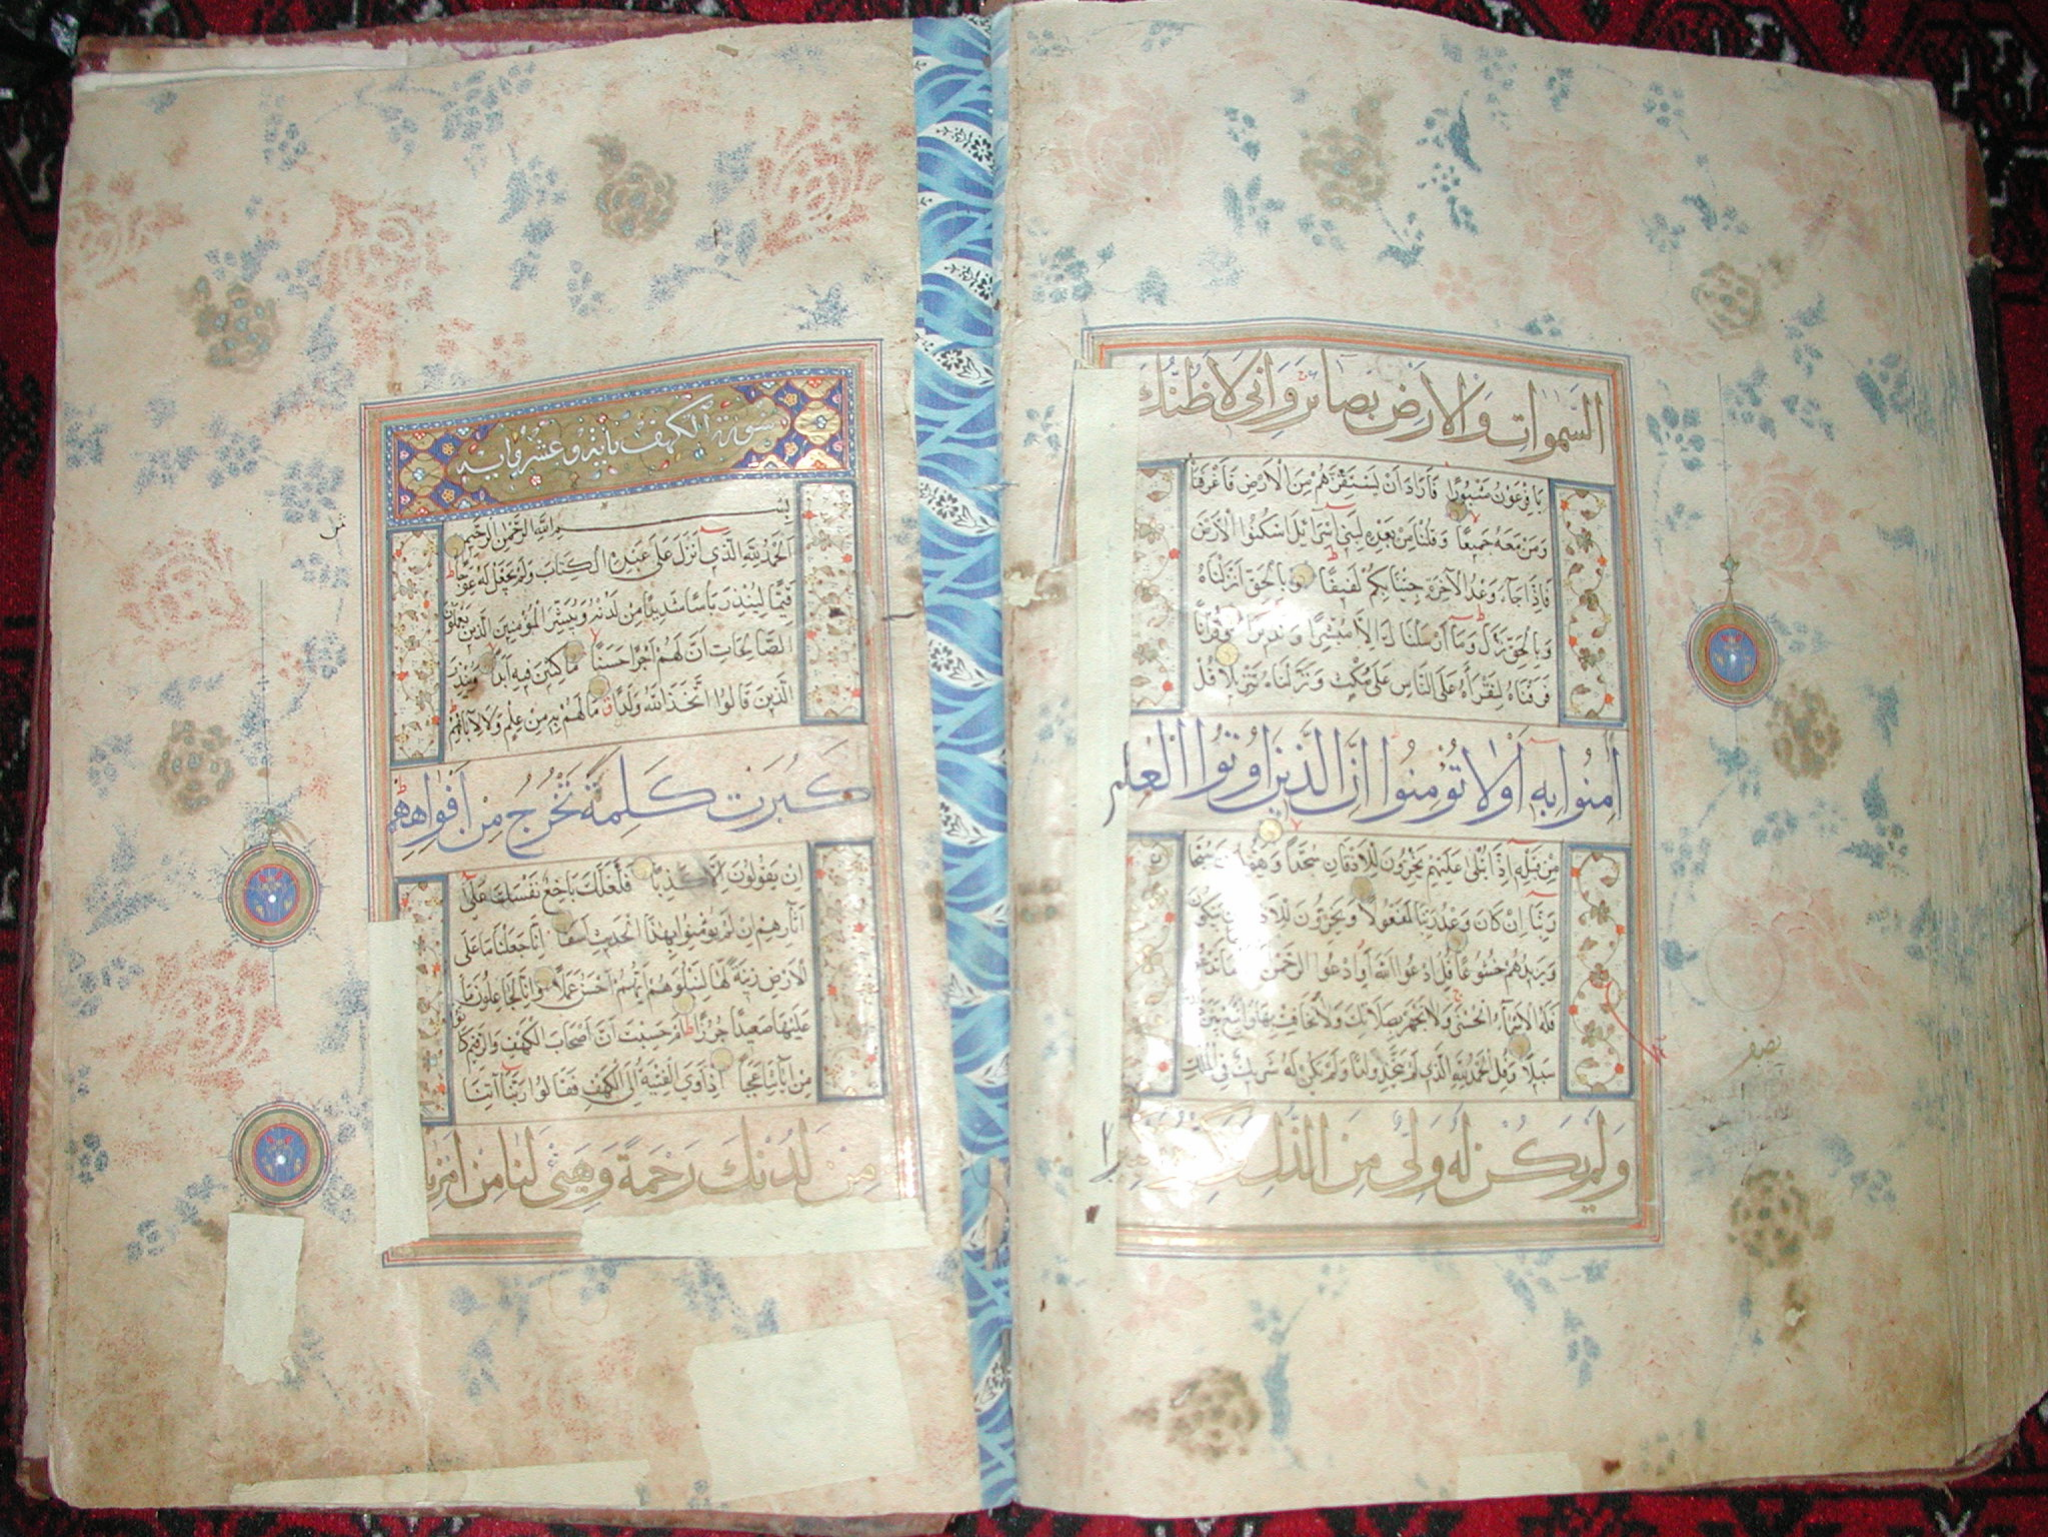 السموات والارض بصائر واني لاظنك
يا فرعون مثبورا فاراد ان يستفزهم من الارض فاغرقناه
ومن معه جميعا وقلنا من بعده لبني اسرآئيل اسكنوا الارض
فاذا جاء وعد الاخرة جئنا بكم لفيفا وبالحق انزلناه
وبالحق نزل وما ارسلناك الا مبشرا ونذيرا وقرانا
فرقناه لتقرأه على الناس على مكث ونزلناه تنزيلا قل
امنوا به اولا تؤمنوا ان الذين اوتوا العلم
من قبله اذا يتلى عليهم يخرون للاذقان سجدا ويقولون سبحان
ربنا ان كان وعد ربنا لمفعولا ويخرون للاذقان يبكون
ويزيدهم خشوعا قل ادعوا الله أو ادعوا الرحمن
فله الاسماء الحسنى ولا تجهر بصلاتك ولا تخافت بها وابتغ بين
سبيلا وقل الحمد لله الذي لم يتخذ ولدا ولم يكن له شريك في الملك
ولم يكن له ولي من الذل
نصف
سورة الكهف مائة وعشر اية
بسم الله الرحمن الرحيم
الحمد لله الذي انزل على عبده الكتاب ولم يجعل له عوجا
قيما لينذر باسا شديدا من لدنه ويبشر المؤمنين الذين يعملون
الصالحات ان لهم اجرا حسنا ماكثين فيه ابدا وينذر
الذين قالوا اتخذ الله ولدا ما لهم به من علم ولا لابائهم
كبرت كلمة تخرج من افواههم
ان يقولون الا كذبا فلعلك باخع نفسك على
آثارهم ان لم يؤمنوا بهذا الحديث اسفا انا جعلنا ما على
الارض زينة لها لنبلوهم ايهم احسن عملا وانا لجاعلون ما
عليها صعيدا جرزا ام حسبت ان اصحاب الكهف والرقيم كانوا
من آياتنا عجبا اذ اوى الفتية الى الكهف فقالوا ربنا آتنا
من لدنك رحمة وهيئ لنا من امرنا